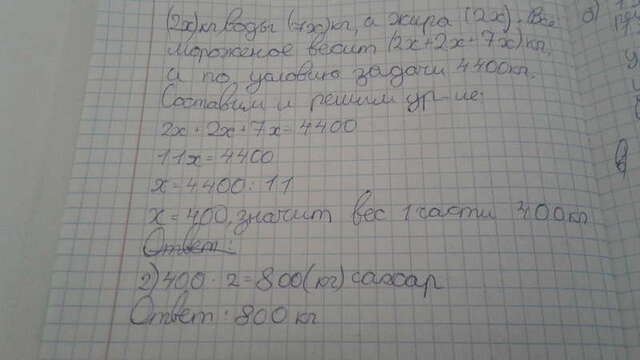 (2х)кг воды (7х)кг, а жира (2х). Все
мороженое весит (2х+2х+7х)кг,
а по условию задачи 4400кг.
Составим и решим ур-ие:
2х+2х+7х=4400
11х=4400
х=4400:11
х=400, значит вес 1 части 400кг
Ответ:
2)400·2=800(кг) сахар
Ответ: 800 кг
б)